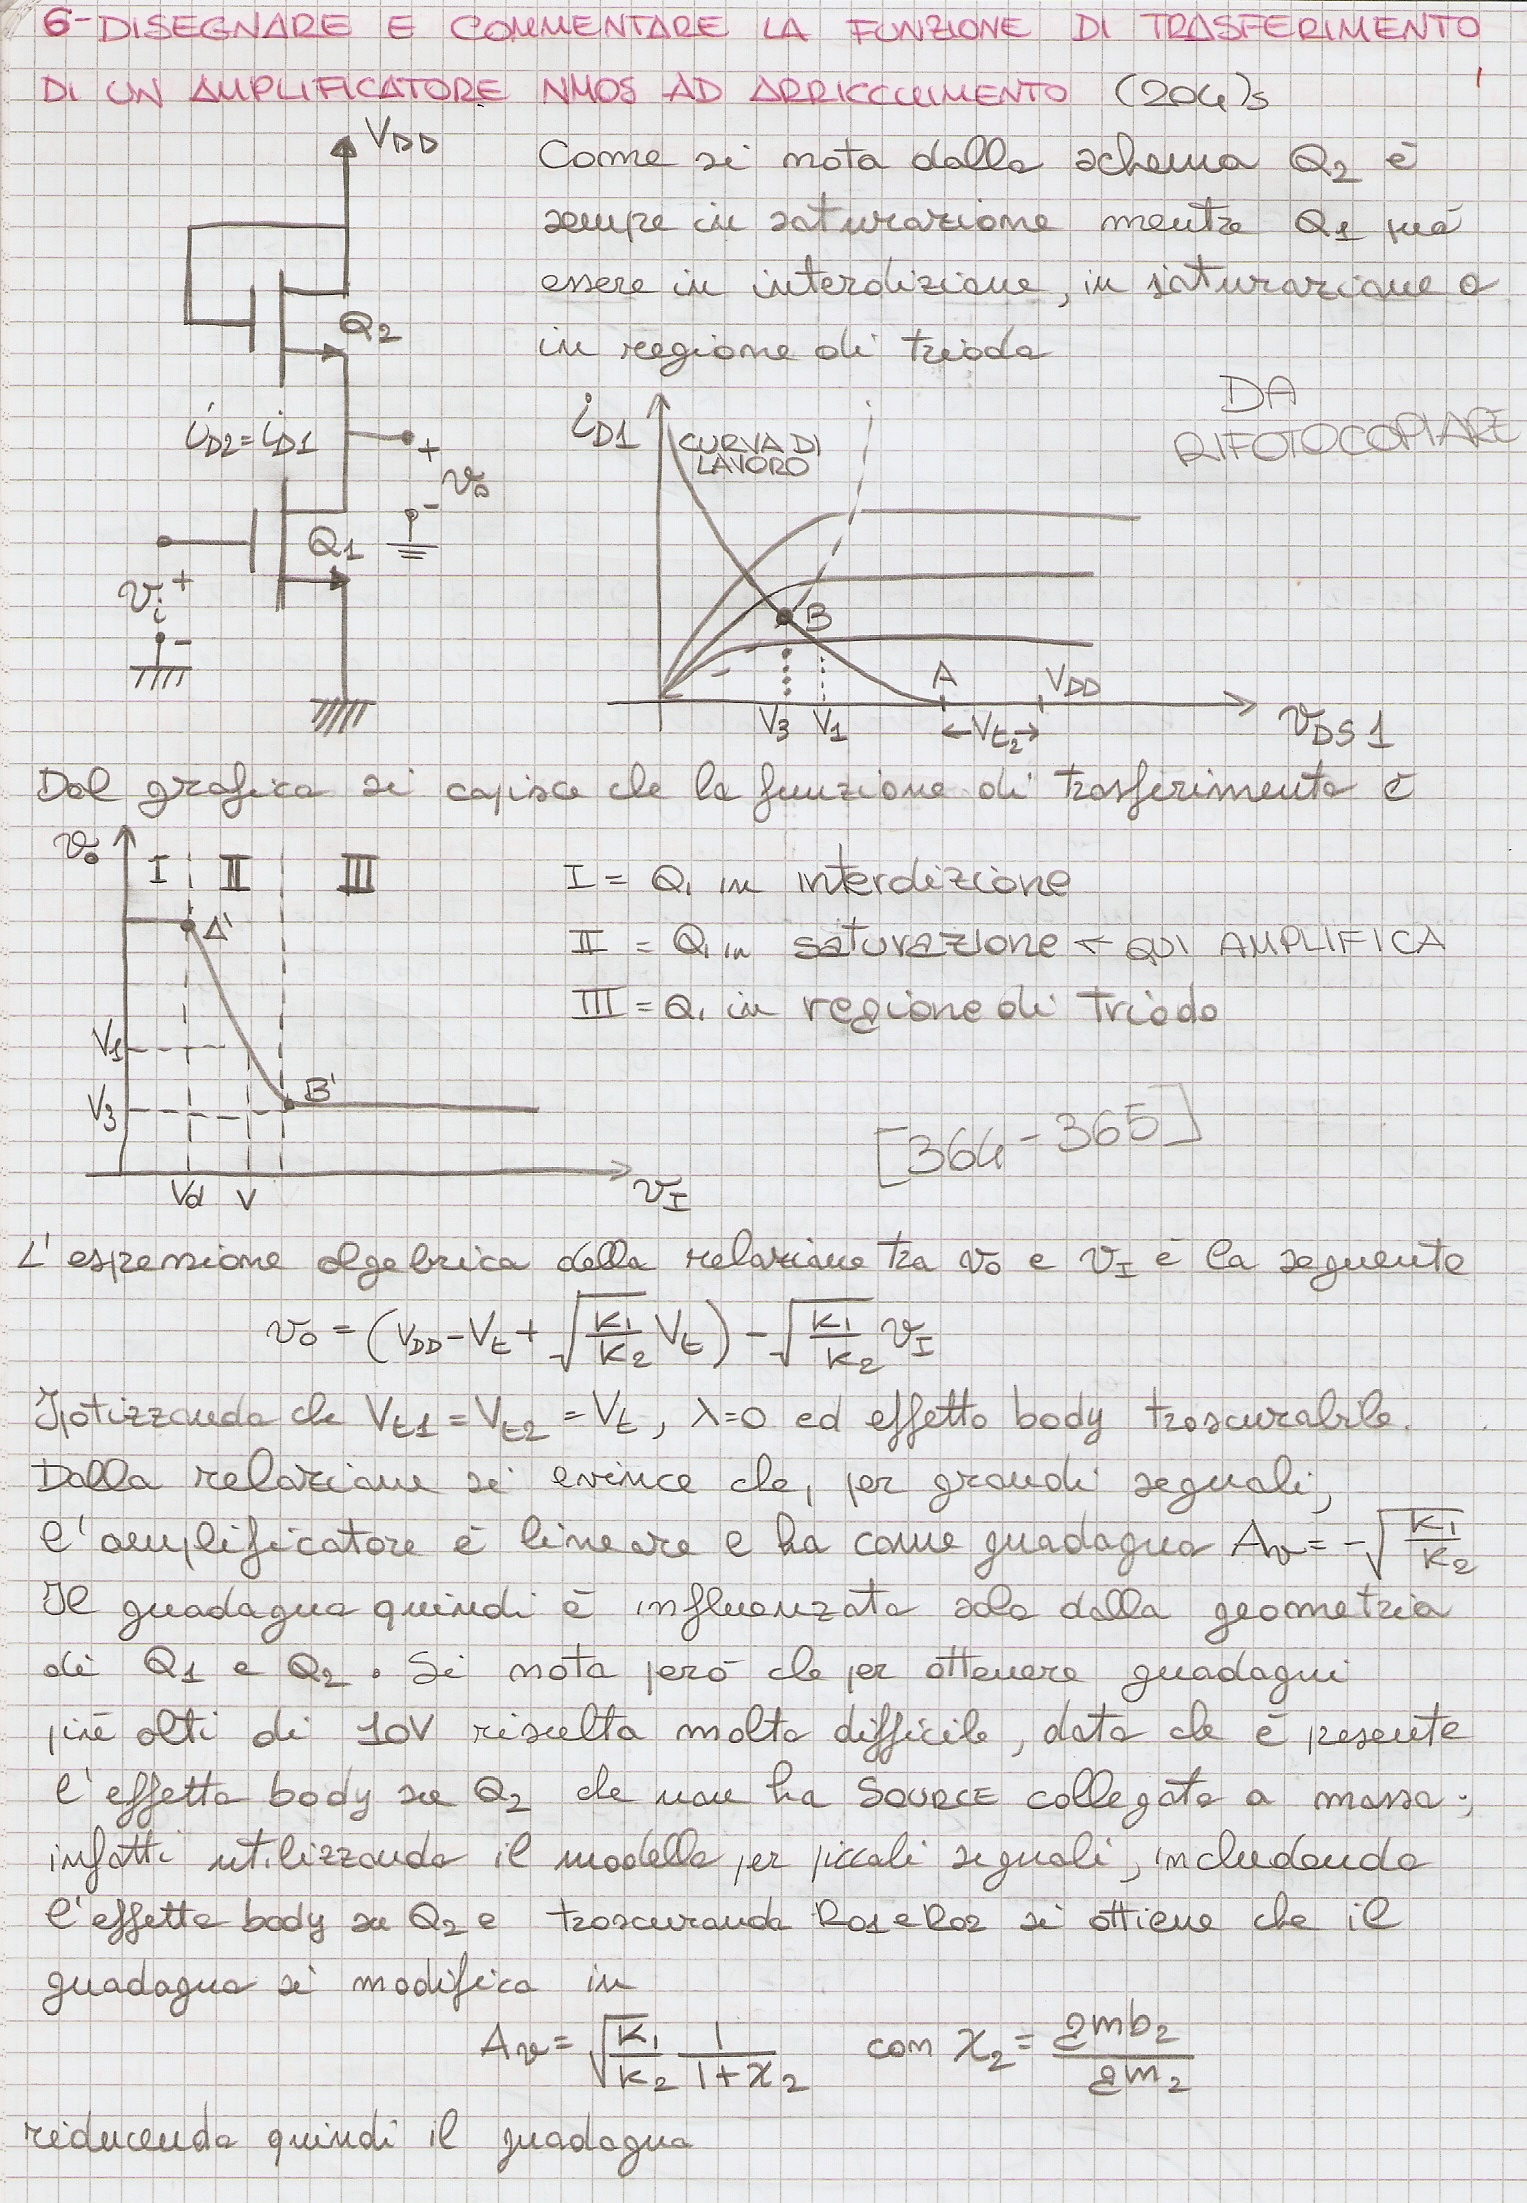 6-DISEGNARE E COMMENTARE LA FUNZIONE DI TRASFERIMENTO
DI UN AMPLIFICATORE NMOS AD ARRICCHIMENTO (204)s
VDD
Come si nota dallo schema Q2 è
sempre in saturazione mentre Q1 può
essere in interdizione, in saturazione o
in regione di triodo
Q2
DA
RIFOTOCOPIARE
iD2=iD1
+
vo
-
Q1
vi
+
-
iD1
CURVA DI
LAVORO
B
A
VDD
V3
V1
←Vt2→
vDS1
Dal grafico si capisce che la funzione di trasferimento è
vo
I
II
III
A'
V1
V3
B'
Vd
V
vI
I = Q1 in interdizione
II = Q1 in saturazione ← QUI AMPLIFICA
III = Q1 in regione di triodo
[364-365]
L'espressione algebrica della relazione tra vo e vI è la seguente
vo = (VDD-Vt+√(K1/K2) Vt) - √(K1/K2) vI
Ipotizzando che Vt1=Vt2=Vt, λ=0 ed effetto body trascurabile.
Dalla relazione si evince che, per grandi segnali,
l'amplificatore è lineare e ha come guadagno Av= -√(K1/K2)
Il guadagno quindi è influenzato solo dalla geometria
di Q1 e Q2. Si nota però che per ottenere guadagni
più alti di 10V risulta molto difficile, dato che è presente
l'effetto body su Q2 che non ha SOURCE collegato a massa;
infatti utilizzando il modello per piccoli segnali, includendo
l'effetto body su Q2 e trascurando Ro1 e Ro2 si ottiene che il
guadagno si modifica in
Av= √(K1/K2) 1/(1+χ2) con χ2= gmb2/gm2
riducendo quindi il guadagno